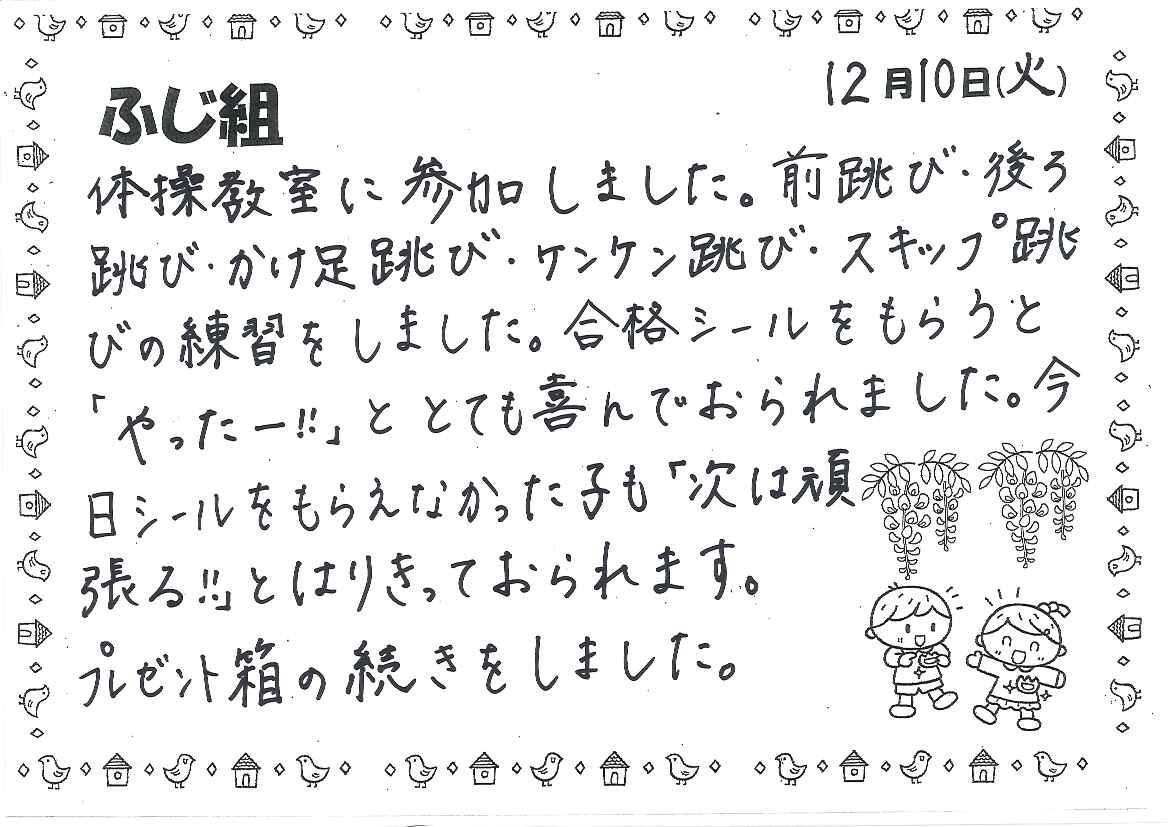 12月10日(火)
ふじ組
体操教室に参加しました。前跳び・後ろ
跳び・かけ足跳び・ケンケン跳び・スキップ跳
びの練習をしました。合格シールをもらうと
「やったー!!」ととても喜んでおられました。今
日シールをもらえなかった子も「次は頑
張る!!」とはりきっておられます。
プレゼント箱の続きをしました。